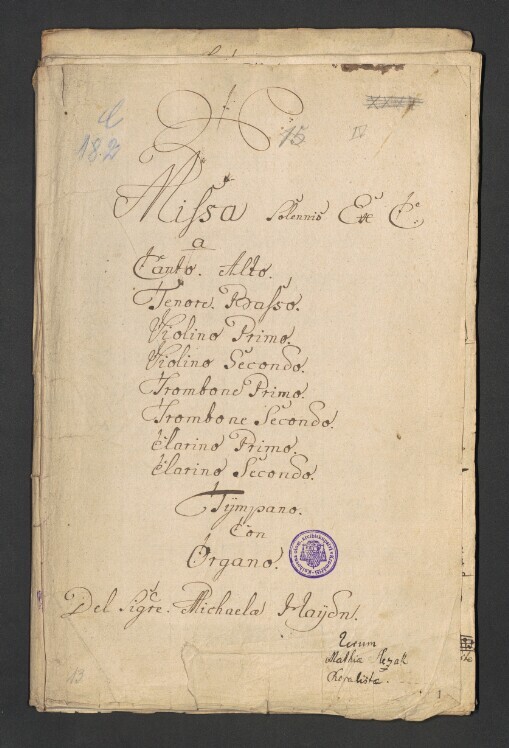 15
IV
C
182
Missa Solennis Ex C.
a
Canto. Alto.
Tenore. Basso.
Violino Primo.
Violino Secondo.
Trombone Primo.
Trombone Secondo.
Clarino Primo.
Clarino Secondo.
Tÿmpano.
Con
Organo.
Del Sigre. Michaele Haÿdn.
Rerum
Mathia
13
1